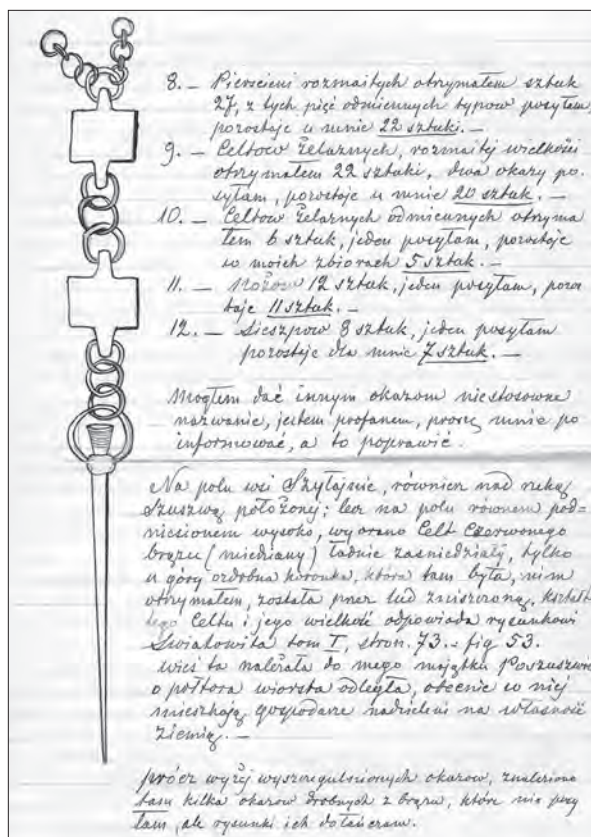 8. — Pierscieni rozmaitych otrzymałem sztuk
27, z tych pięć odmiennych typow posyłam,
pozostaje u mnie 22 sztuki. —
9. — Celtow żelaznych, rozmaitej wielkości
otrzymałem 22 sztuki, dwa okazy po-
syłam, pozostaje u mnie 20 sztuk. —
10. — Celtow żelaznych odmiennych otrzyma
łem 6 sztuk, jeden posyłam, pozostaje
w moich zbiorach 5 sztuk. —
11. — Nożow 12 sztuk, jeden posyłam, pozos
taje 11 sztuk. —
12. — Sierpow 8 sztuk, jeden posyłam
pozostaje dla mnie 7 sztuk. —
Mogłem dać innym okazom niestosowne
nazwanie, jestem profanem, proszę mnie po
informować, a to poprawić.
Na polu wsi Szyłajcie, rownież nad rzeką
Szuszwą położonej; lecz na polu równem pod=
niesionem wysoko, wyorano Celt czerwonego
brązu (miedziany) ładnie zasniedziały, tylko
u góry ozdobna koronka, która tam była, nim
otrzymałem, została przez lud zniszczoną, kształt
tego Celtu i jego wielkość odpowiada rysunkowi
Swiatowita tom I, stron. 73. fig 53.
wieś ta należała do mego majątku Poszuszwie
o połtora wiorsta odległa, obecnie w niej
mieszkają gospodarze nadzieleni na własność
ziemią. —
prócz wyżej wyszczegulnionych okazow, znaleziono
tam kilka okazow drobnych z brązu, które nie posy
łam, ale rysunki ich dołączam.